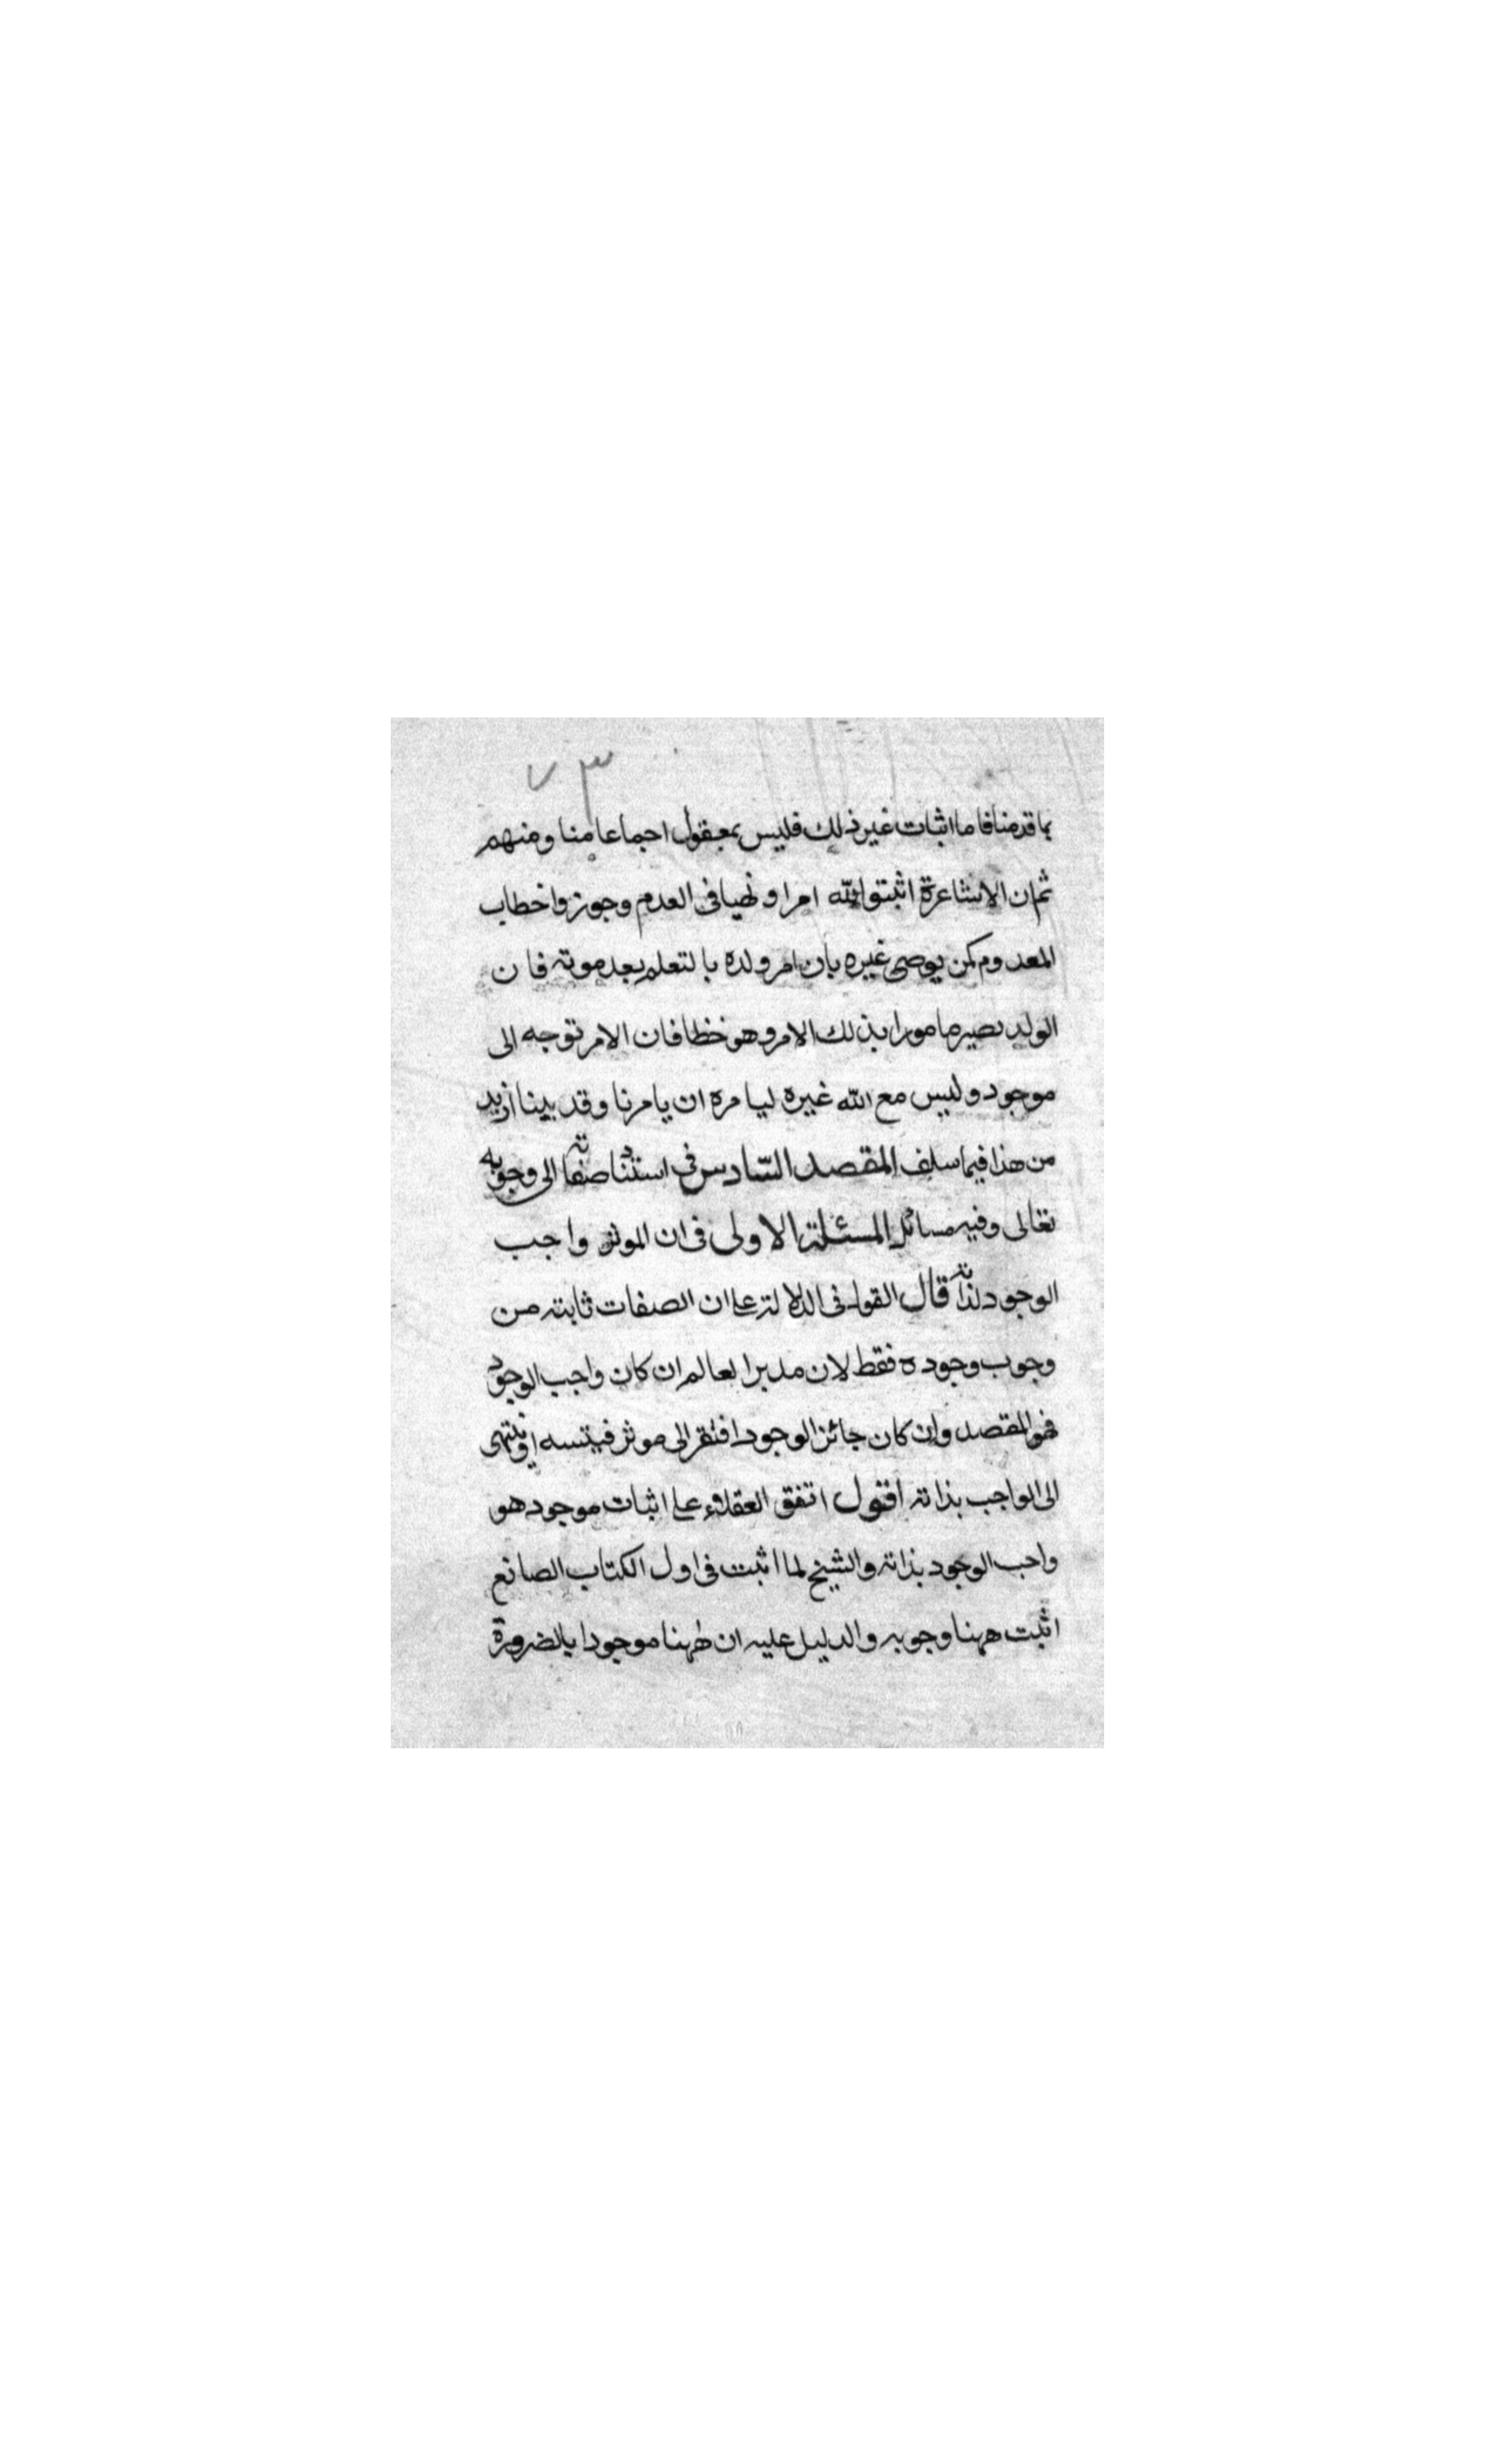 ٧٣
بما قدمنا فاما اثبات غير ذلك فليس بمعقول اجماعا منا ومنهم
ثم ان الاشاعرة اثبتوا لله امرا ونهيا في العدم وجوزوا خطاب
المعدوم كمن يوصي غيره بان امر ولده بالتعلم بعد موته فان
الولد يصير مامورا بذلك الامر وهو خطا فان الامر توجه الى
موجود وليس مع الله غيره ليامره ان يامرنا وقد بينا ازيد
من هذا فيما سلف المقصد السادس في استناد صفاته الى وجوبه
تعالى وفيه مسائل المسئلة الاولى في ان الموثر واجب
الوجود لذاته قال القول في الدلالة على ان الصفات ثابتة من
وجوب وجوده فقط لان مدبر العالم ان كان واجب الوجود
فهو المقصد وان كان جائز الوجود افتقر الى موثر فيتسـه او ينتهى
الى الواجب بذاته اقول اتفق العقلاء على اثبات موجود هو
واجب الوجود بذاته والشيخ لما اثبت في اول الكتاب الصانع
اثبت ههنا وجوبه والدليل عليه ان ههنا موجودا بالضرورة